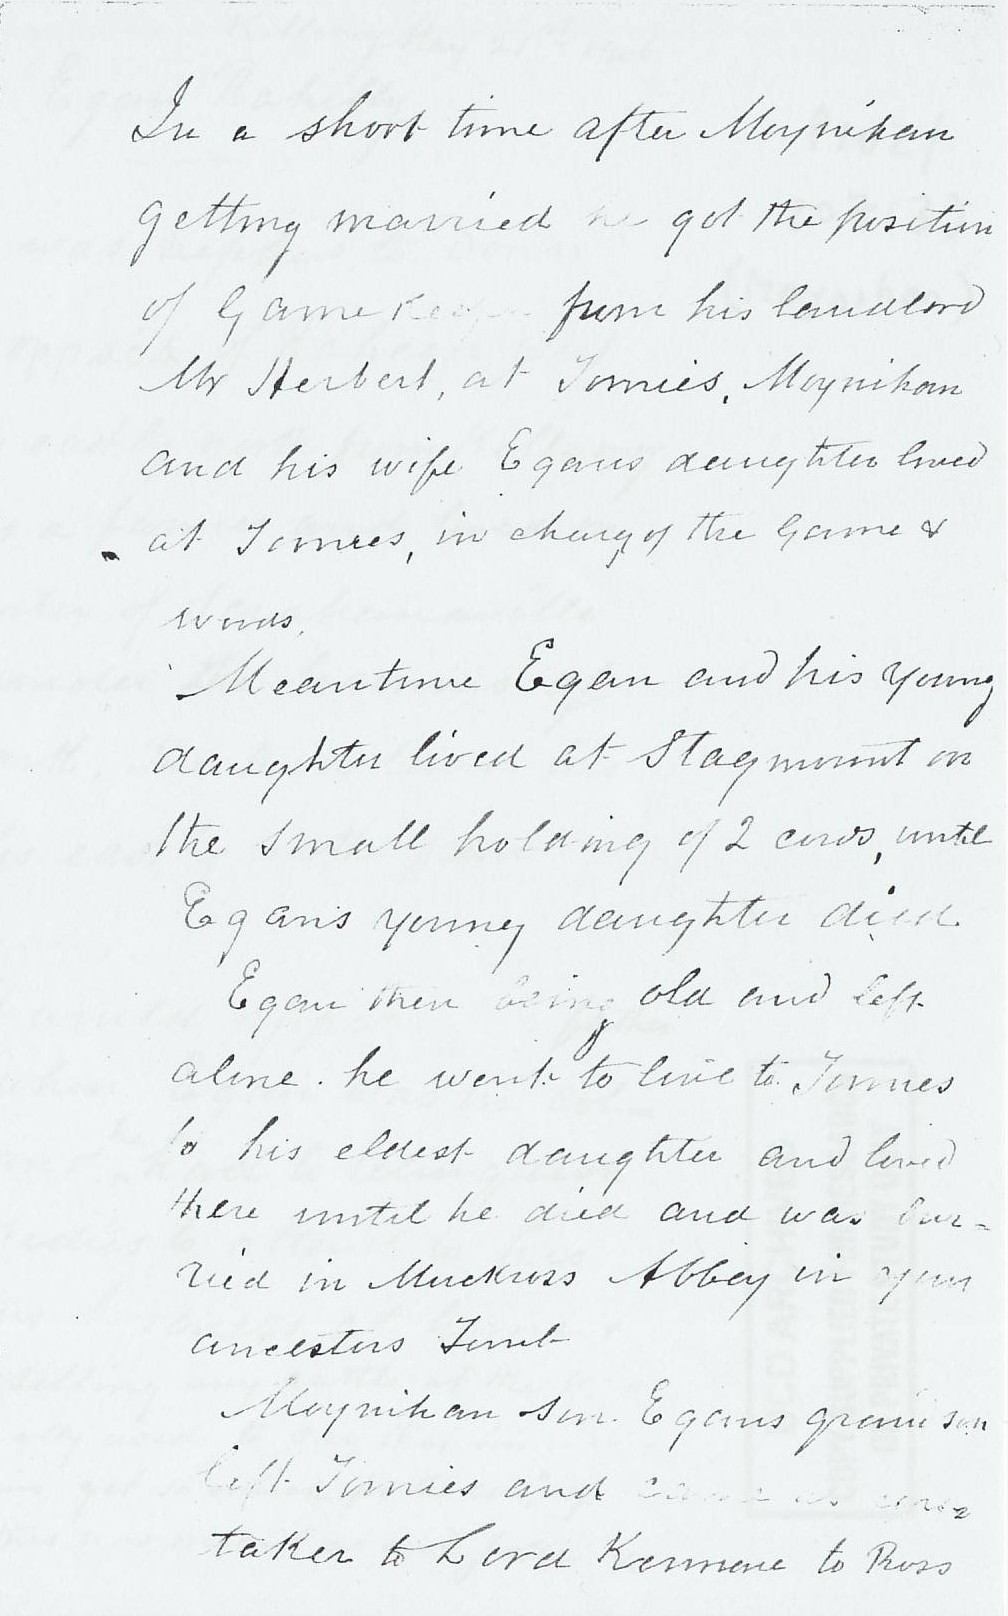 In a short time after Moynihan
getting married he got the position
of Game Keeper from his landlord
Mr Herbert, at Tomies, Moynihan
and his wife Egans daughter lived
at Tomies, in charg of the Game &
woods.
Meantime Egan and his young
daughter lived at Stagmount on
the small holding of 2 cows, until
Egans young daughter died.
Egan then being old and left
alone. he went to live to Tomies
to his eldest daughter and lived
there until he died and was bur-
ried in Muckross Abbey in your
ancestors Tomb
Moynihan son. Egans grand son
left Tomies and came as care
taker to Lord Kenmare to Ross